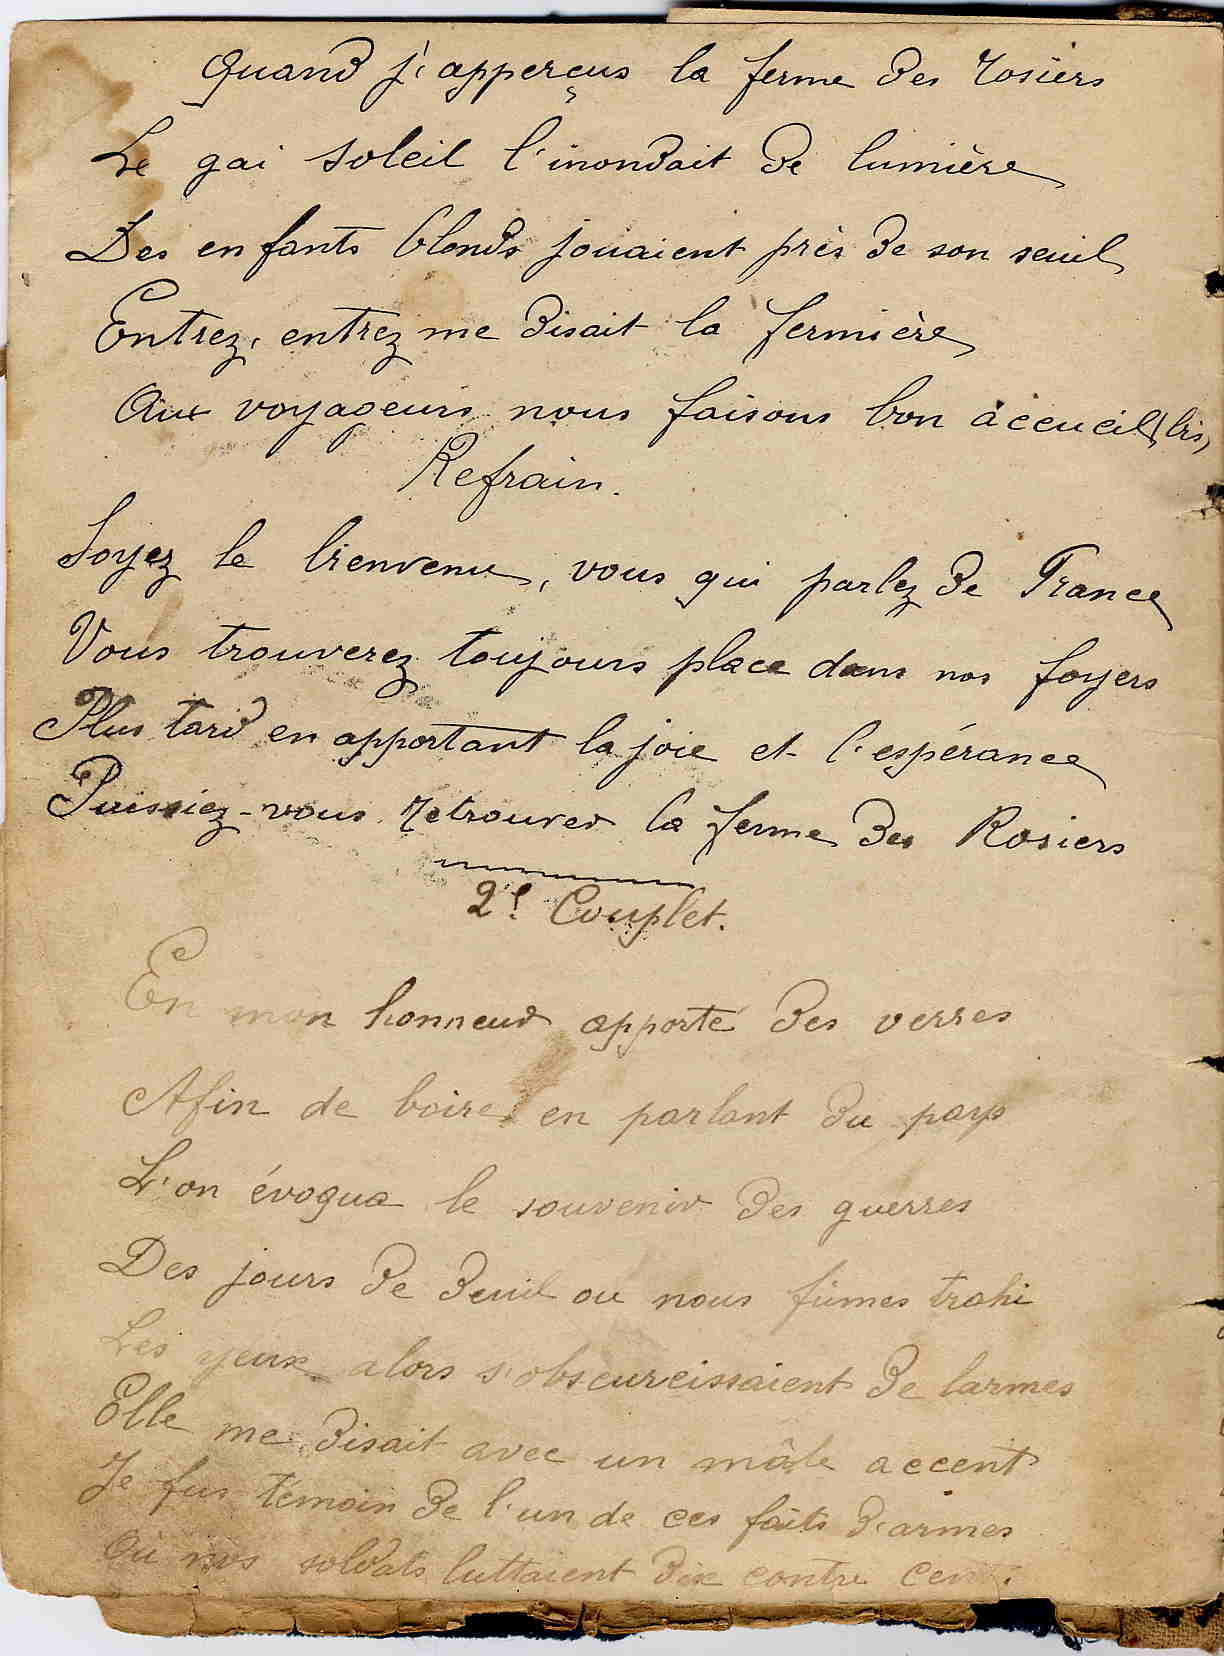 Quand j'apperçus la ferme des rosiers
Le gai soleil l'inondait de lumière
Des enfants blonds jouaient près de son seuil
Entrez, entrez me disait la fermière
Aux voyageurs nous faisons bon acceueil (bis)
Refrain.
Soyez le bienvenu, vous qui parlez de France
Vous trouverez toujours place dans nos foyers
Plus tard en apportant la joie et l'espérance
Puissiez-vous retrouver la ferme des Rosiers
2e Couplet.
En mon honneur apporté des verres
Afin de boire en parlant du pays
L'on évoqua le souvenir des guerres
Des jours de deuil ou nous fûmes trahi
Les yeux alors s'obscurcissaient de larmes
Elle me disait avec un mâle accent
Je fus témoin de l'un de ces faits d'armes
Où nos soldats luttaient dix contre cent.